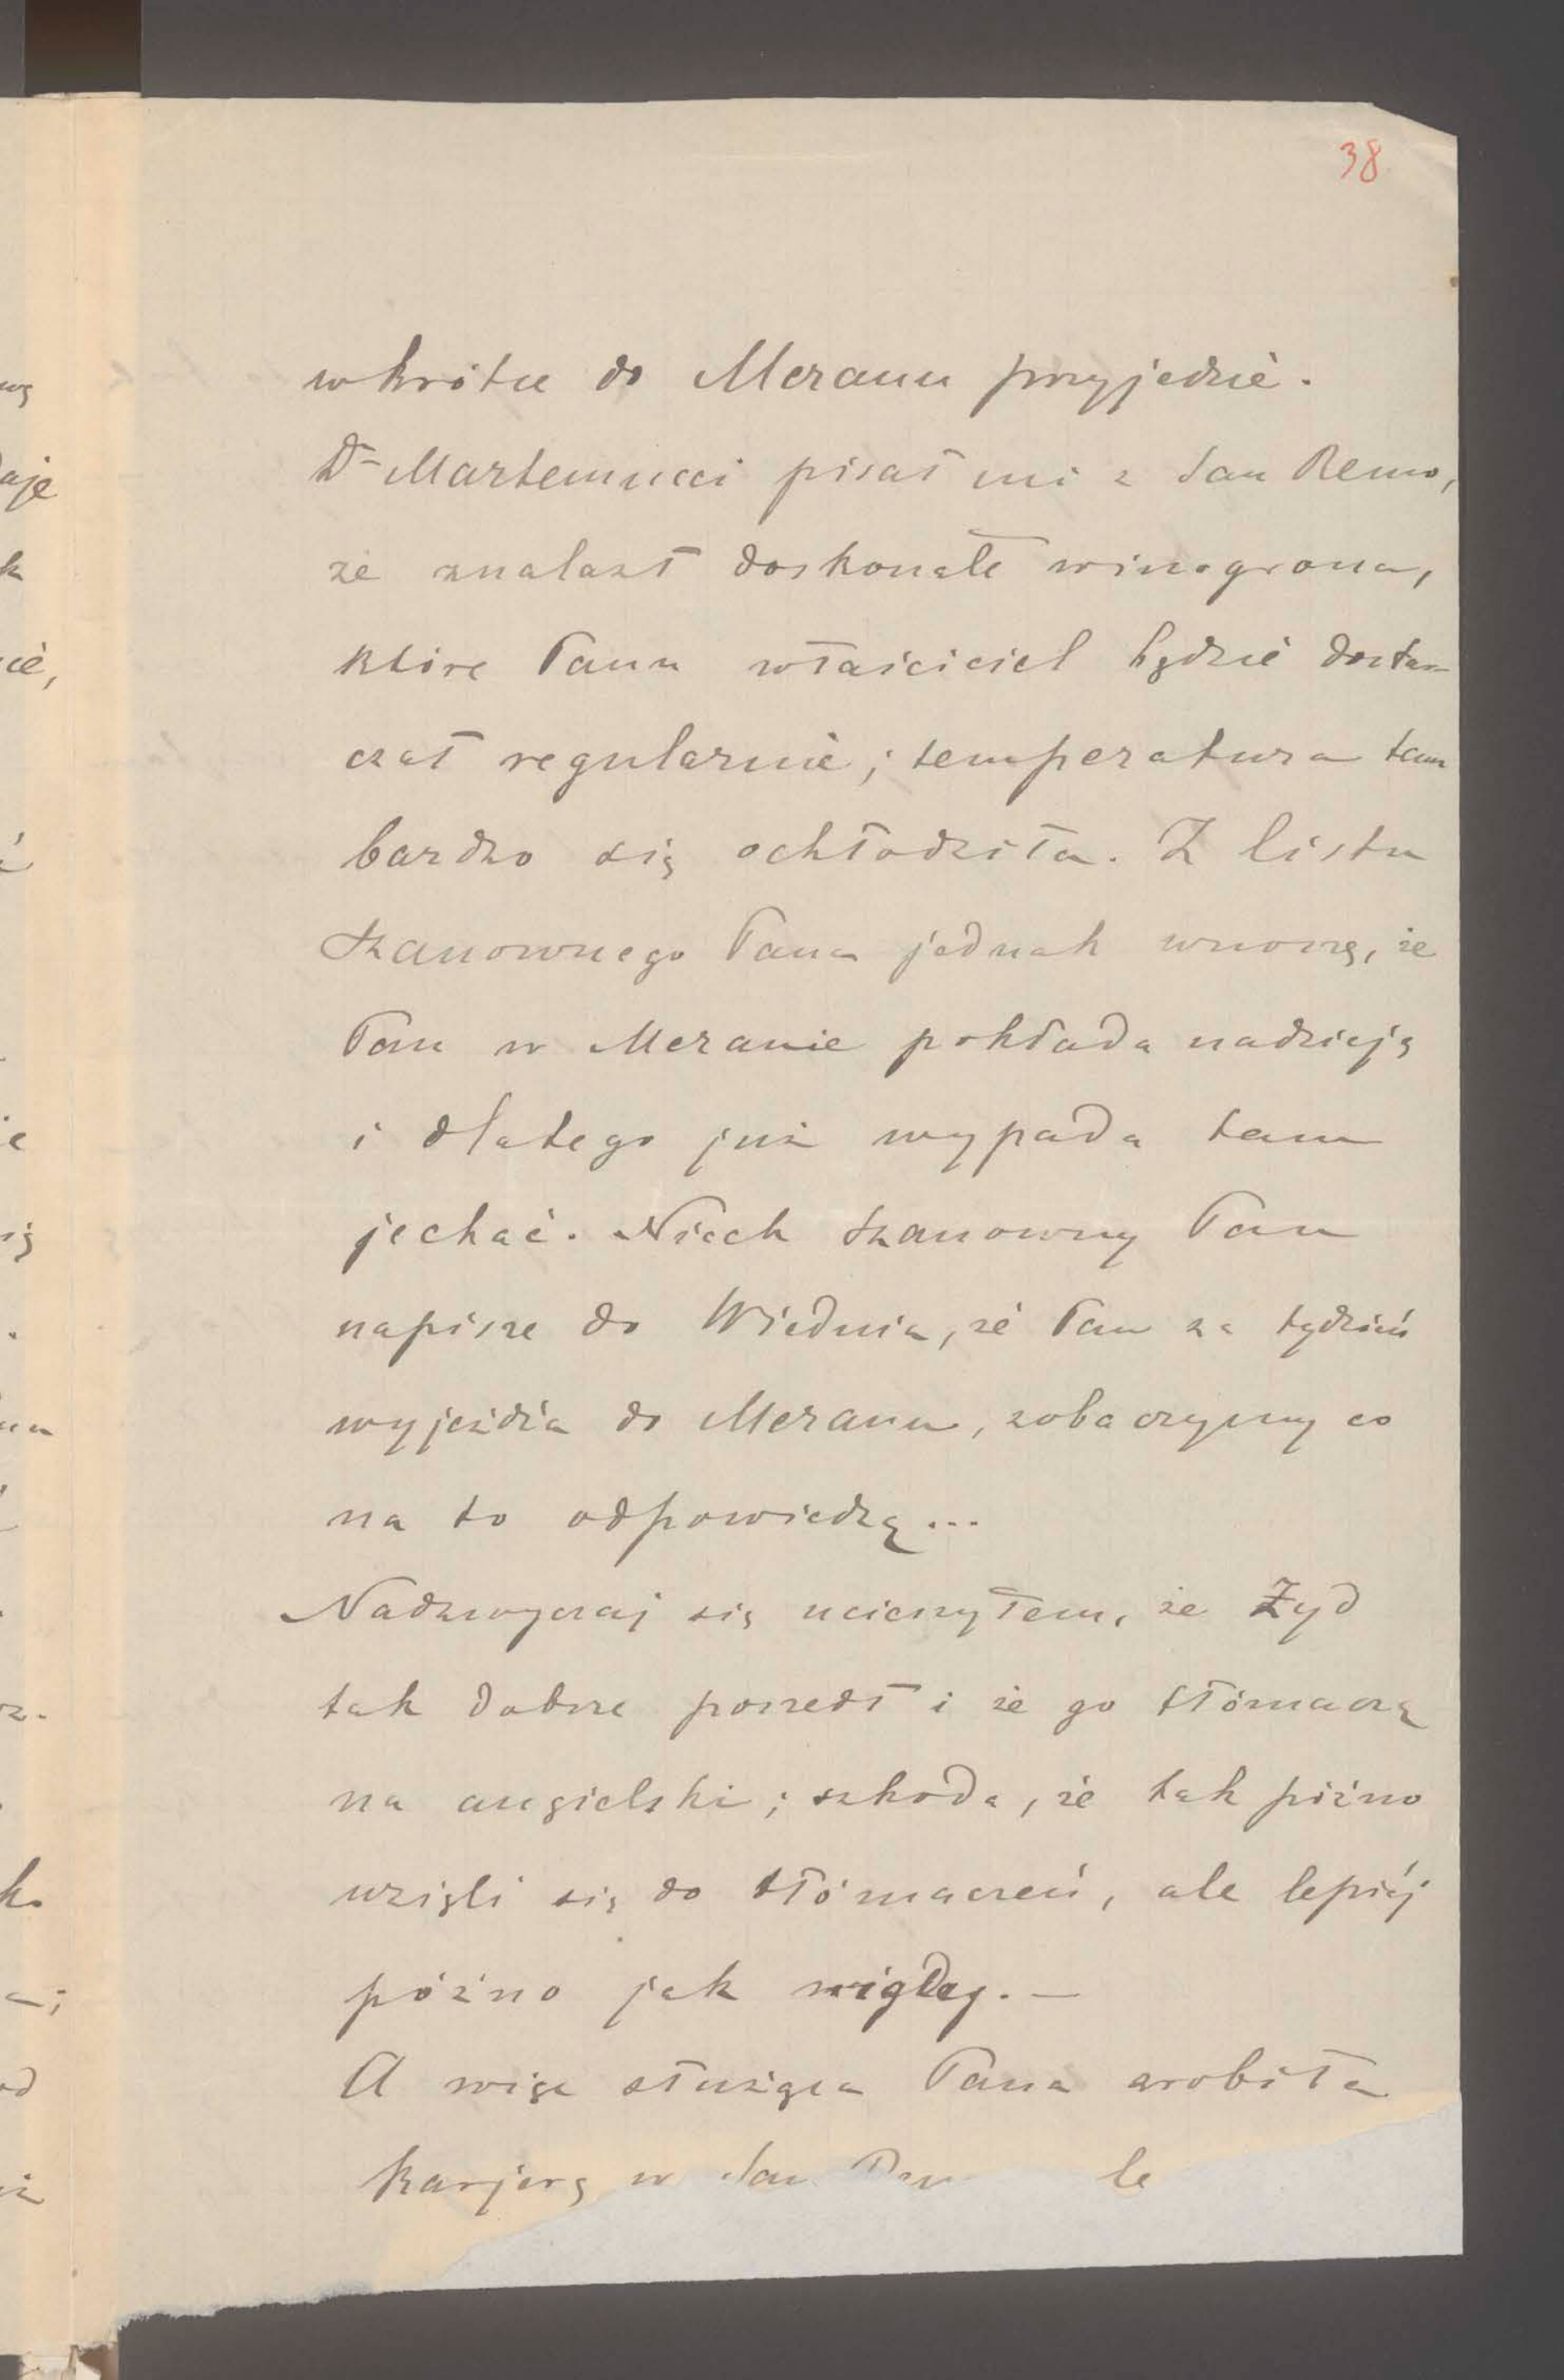 38
wkrótce do Meranu przyjedzie.
Dr Martemucci pisał mi z San Remo,
że znalazł doskonałe winogrona,
które Panu właściciel będzie dostar-
czał regularnie; temperatura tam
bardzo się ochłodziła. Z listu
Szanownego Pana jednak wnoszę, że
Pan w Meranie pokłada nadzieję
i dlatego już wypada tam
jechać. Niech Szanowny Pan
napisze do Wiednia, że Pan za tydzień
wyjeżdża do Meranu, zobaczymy co
na to odpowiedzą...
Nadzwyczaj się ucieszyłem, że Żyd
tak dobrze poszedł i że go tłómaczą
na angielski; szkoda, że tak późno
wzięli się do tłómaczeń, ale lepiéj
późno jak nigdy. —
A więc służąca Pana zrobiła
karjerę w San